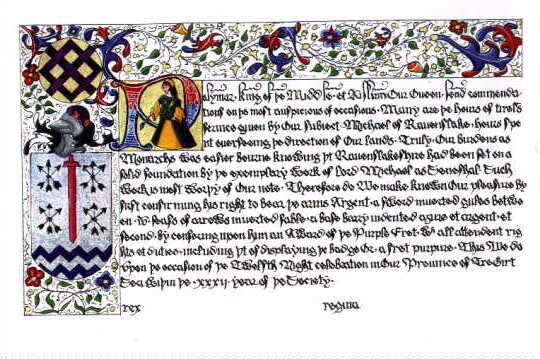 Palymar, king of ye Middle, et Aislinn Our Queen, send commenda
tions on ye most auspicious of occasions. Many are ye hours of
service given by Our subject, Michael of Ravenslake, hours spe
nt overseeing ye direction of Our lands. Truly, Our burdens as
Monarchs was easier bourne knowing yt Ravenslakeshyre had been set on a
solid foundation by ye exemplary work of Lord Michael as Seneshal. Such
work is most worþy of Our note. Therefore do We make known Our pleasure by
first confirming his right to bear ye arms Argent, a sword inverted gules betwe
en seafs of arrows inverted sable, a base barry indented azure et argent, et
second, by confering upon him an Award of ye Purple Fret, all attendent rig
hts et duties, including yt of displaying ye badge Or, a fret purpure. This We do
upon ye occasion of ye Twelfth Night celebration in Our Province of Tree Girt
Sea wiþin ye XXXII year of ye Society.
rex regina